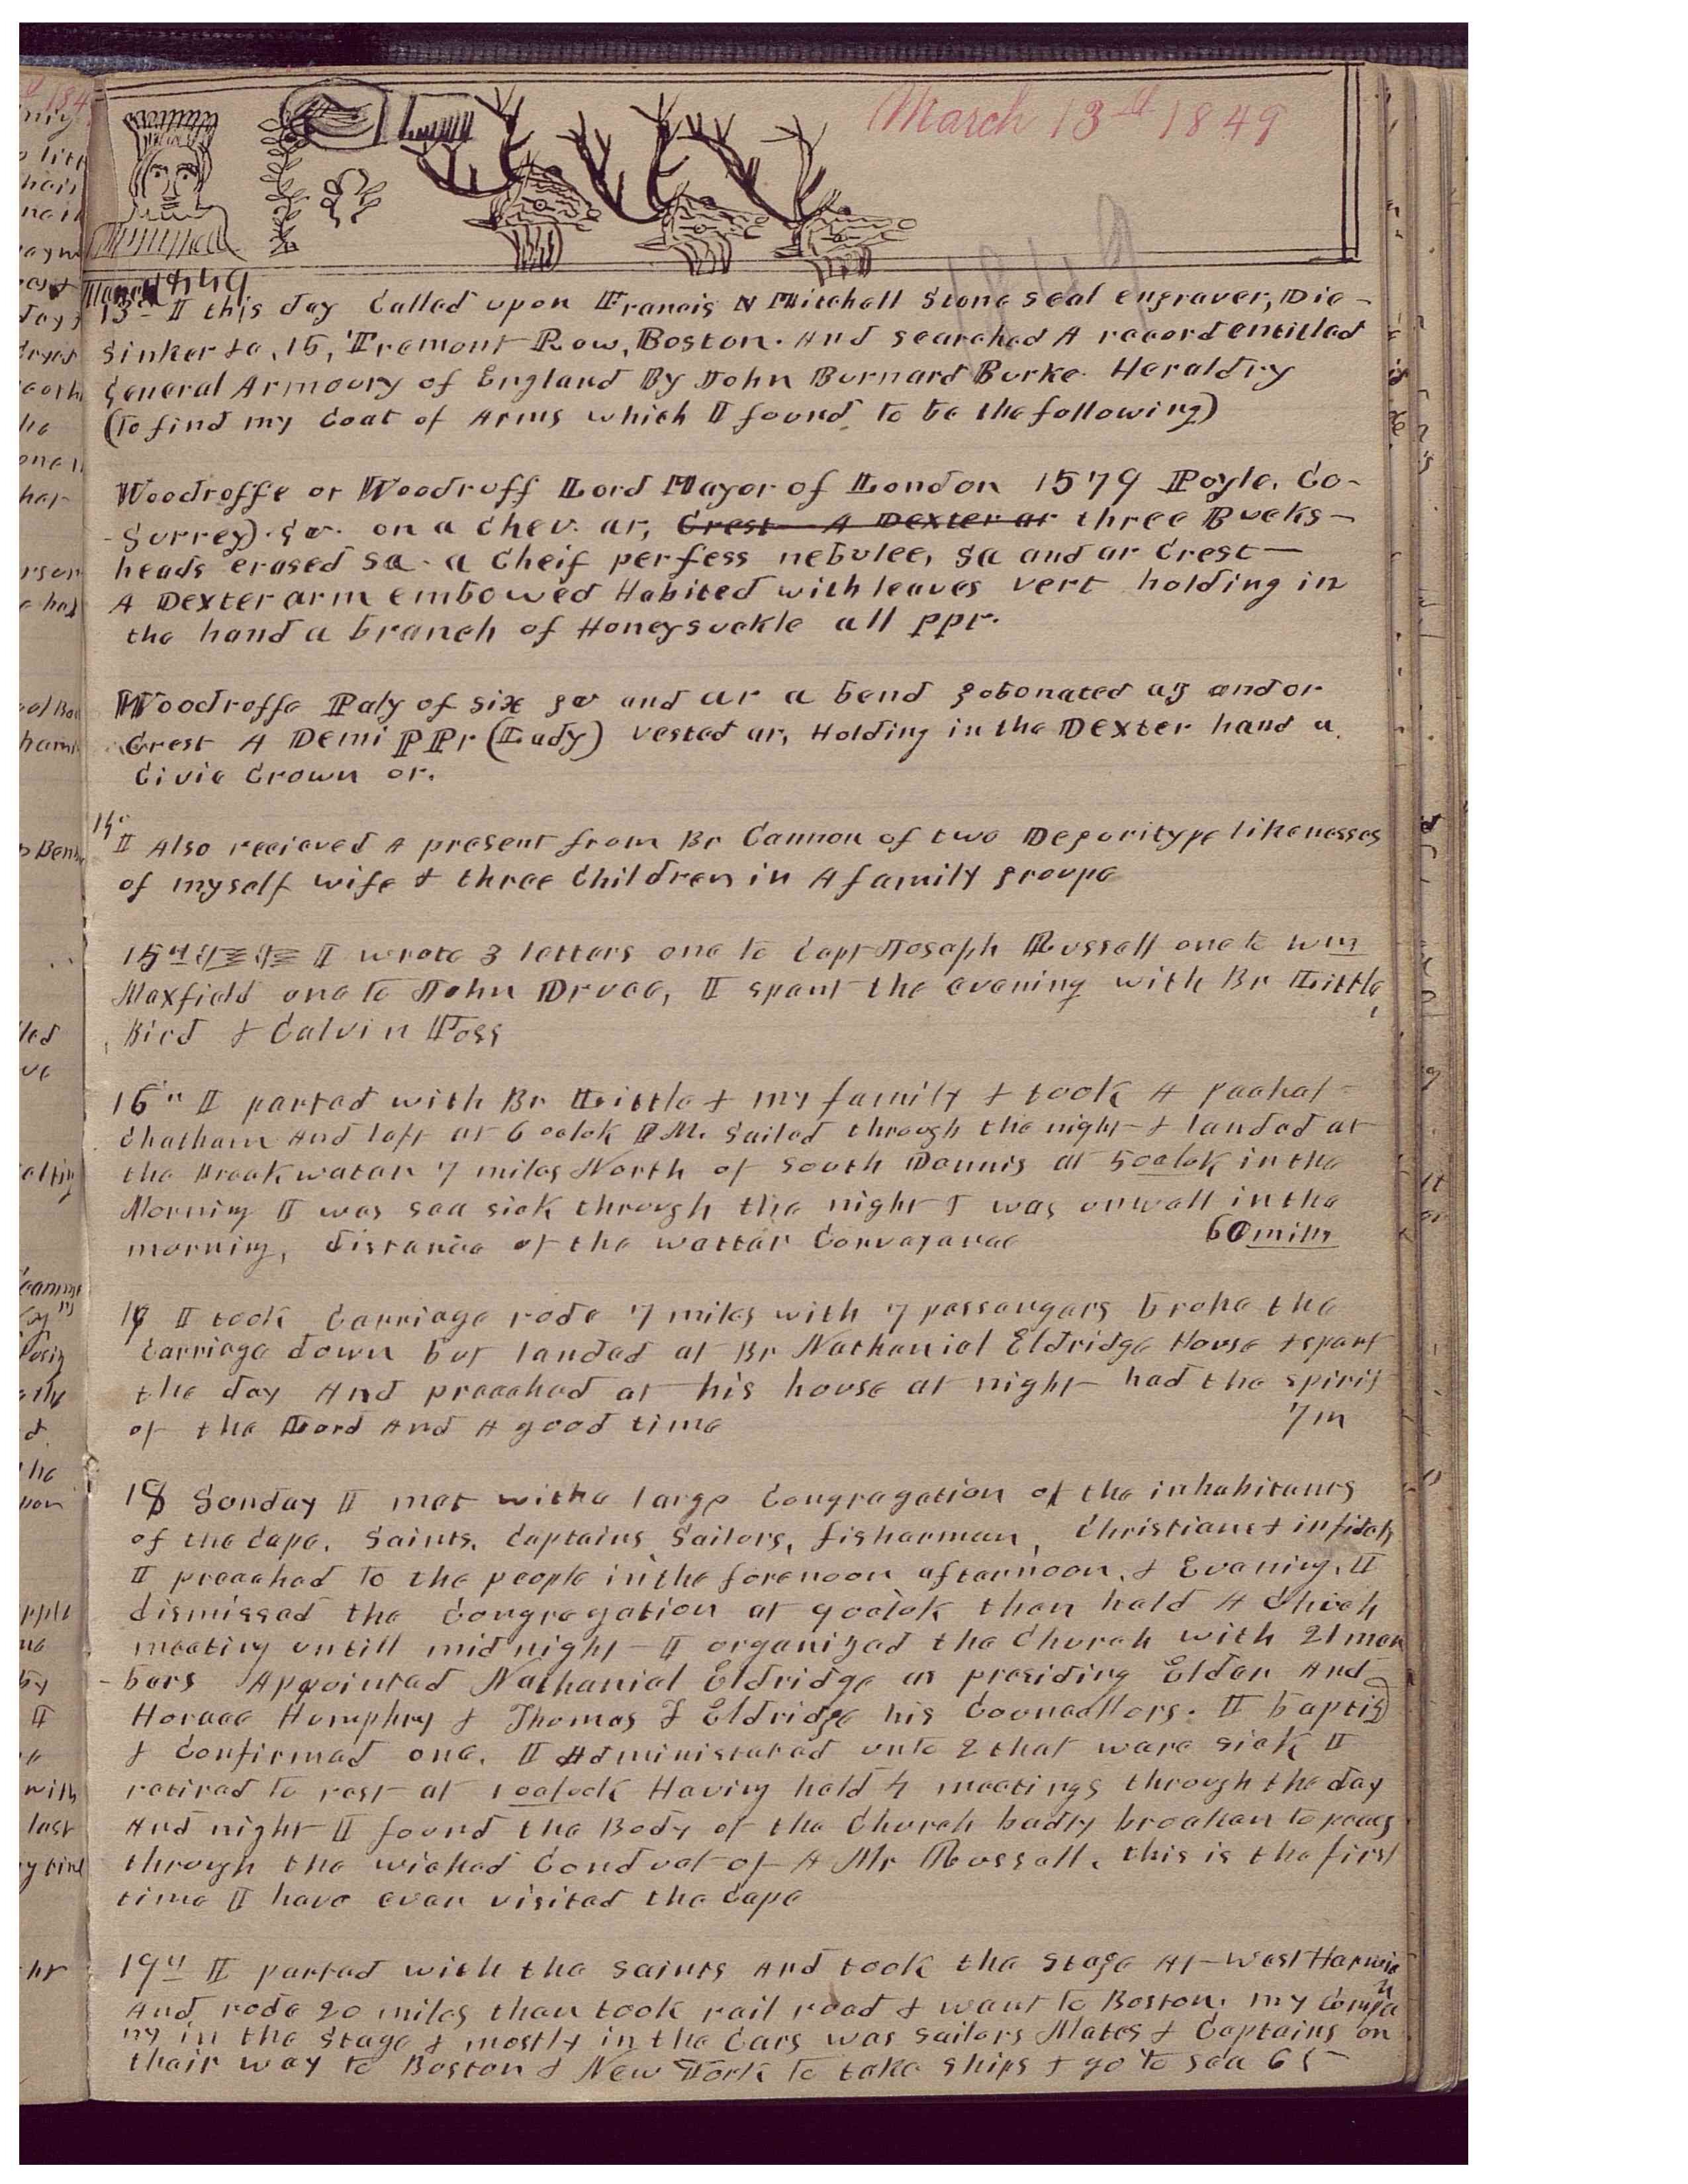 March 13th 1849
March 1849
13th I this day Called upon Francis N Mitchell Stone seal engraver, Die-
sinker &c, 15, Tremont Row, Boston. And searched A record entitled
General Armoury of England By John Burnard Burke Heraldry
(To find my Coat of Arms which I found to be the following)
Woodroffe or Woodruff Lord Mayor of London 1579 Poyle, Co-
-Surrey). gu. on a Chev. ar, Crest A Dexter ar three Bucks-
heads erased sa. a Cheif perfess nebulee, sa and ar Crest—
A Dexter arm embowed Habited with leaves vert holding in
the hand a branch of Honeysuckle all ppr.
Woodroffe Paly of six gu and ar a bend gobonated az and or
Crest A Demi PPr (Lady) vested ar, Holding in the Dexter hand a
Civic Crown or.
14th
I Also recieved A present from Br Cannon of two Degoritype likenesses
of myself wife & three Children in A family groupe
15th I wrote 3 letters one to Capt Joseph Russell one to Wm
Maxfield one to John Druce, I spent the evening with Br Little,
Bird & Calvin Foss
16th I parted with Br Little & my family & took A packet
Chatham And left at 6 oclok P.M. Sailed through the night & landed at
the Breakwater 7 miles North of South Dennis at 5 oclok in the
Morning I was sea sick through the night & was unwell in the
morning, distance of the wattar Convayance 60 miles
17 I took Carriage rode 7 miles with 7 passengers broke the
Carriage down but landed at Br Nathaniel Eldridge House & spent
the day And preached at his house at night had the spirit
of the Lord And A good time 7 m
18 Sunday I met with a large Congregation of the inhabitants
of the Cape, Saints, Captains Sailors, fisherman, Christians & infidels
I preached to the people in the forenoon afternoon, & Evening. I
dismissed the Congregation at 9 oclok then held A Chuch
meeting untill midnight I organized the Church with 21 mem
-bers Appointed Nathanial Eldridge as presiding Elder And
Horace Humphry & Thomas F Eldridge his Councellors. I baptized
& Confirmed one. I Administered unto 2 that ware sick I
retired to rest at 1 oclock Having held 4 meetings through the day
And night I found the Body of the Church badly broaken to peaces
through the wicked Conduct of A Mr Russell. this is the first
time I have ever visited the Cape
19th I parted with the Saints And took the stage At West Harwich
And rode 20 miles then took rail road & went to Boston. my Compa
ny in the stage & mostly in the Cars was sailors Mates & Captains on
thair way to Boston & New York to take ships & go to sea 65